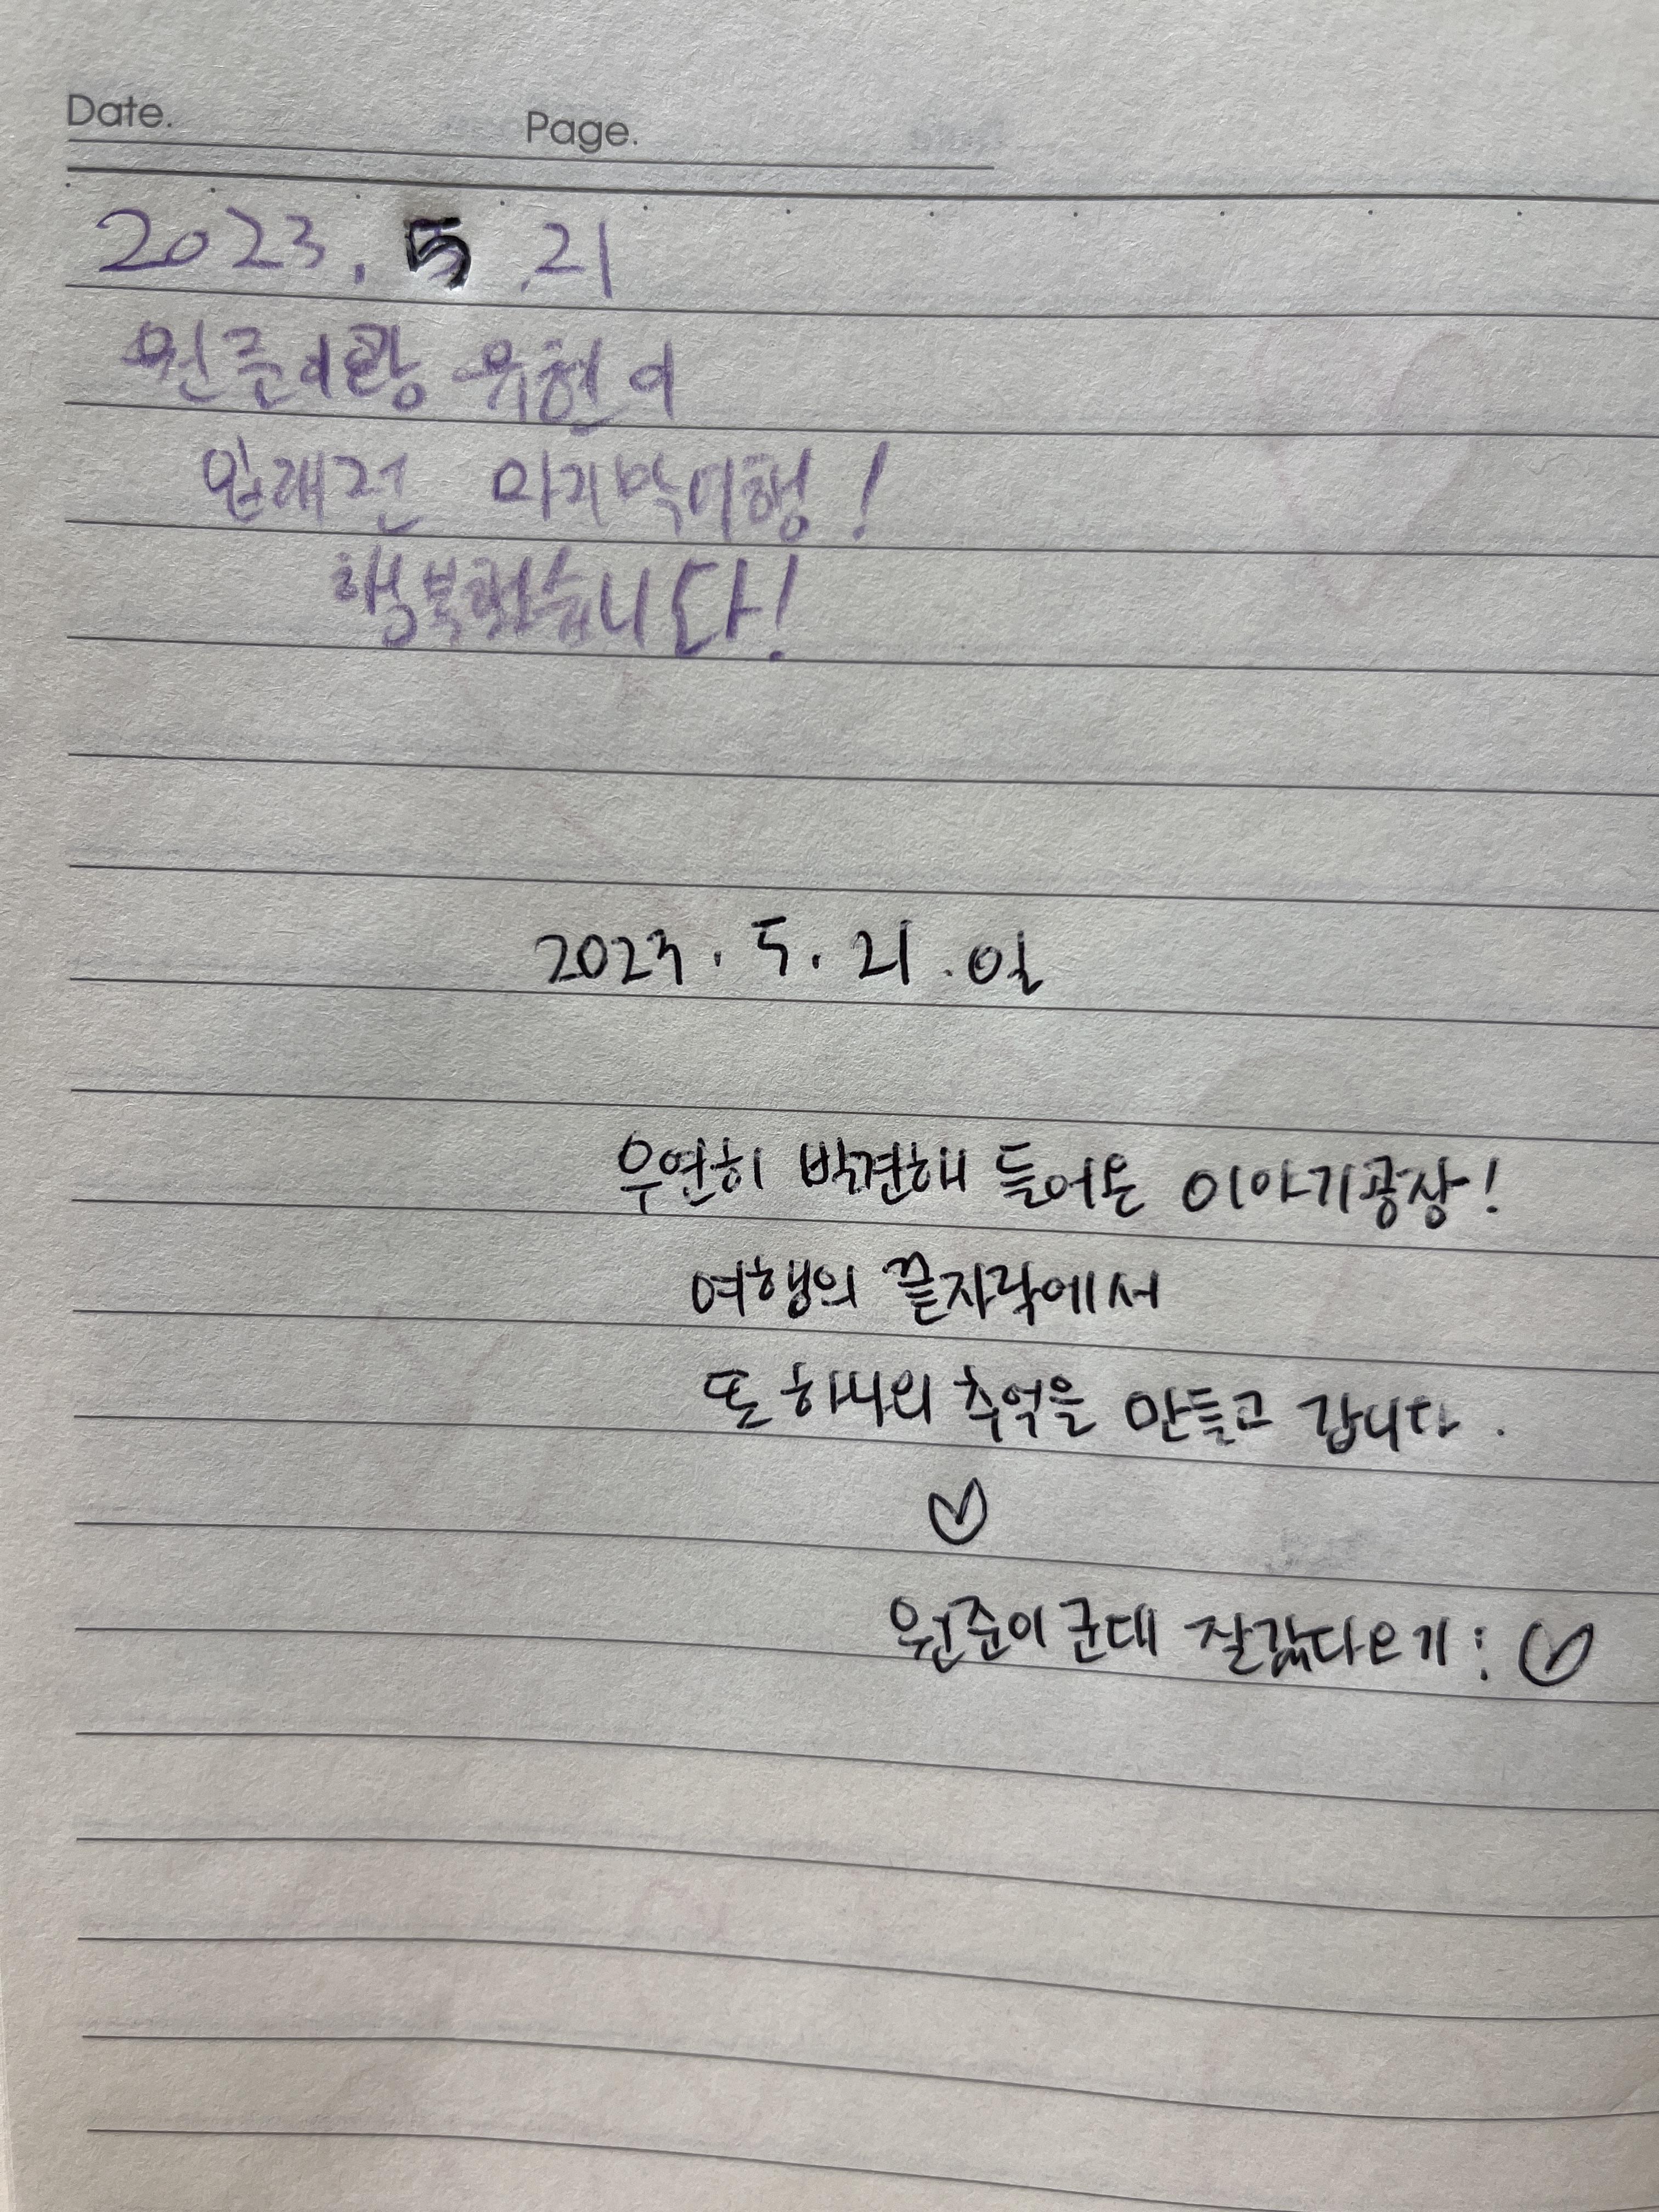 Date. Page.
2023. 5 .21
원준이랑 유현이
입대전 마지막여행!
행복했습니다!
2023. 5. 21. 일
우연히 발견해 들어온 이야기광장!
여행의 끝자락에서
또 하나의 추억을 만들고 갑니다.
♡
원준이 군대 잘갔다오기 : ♡